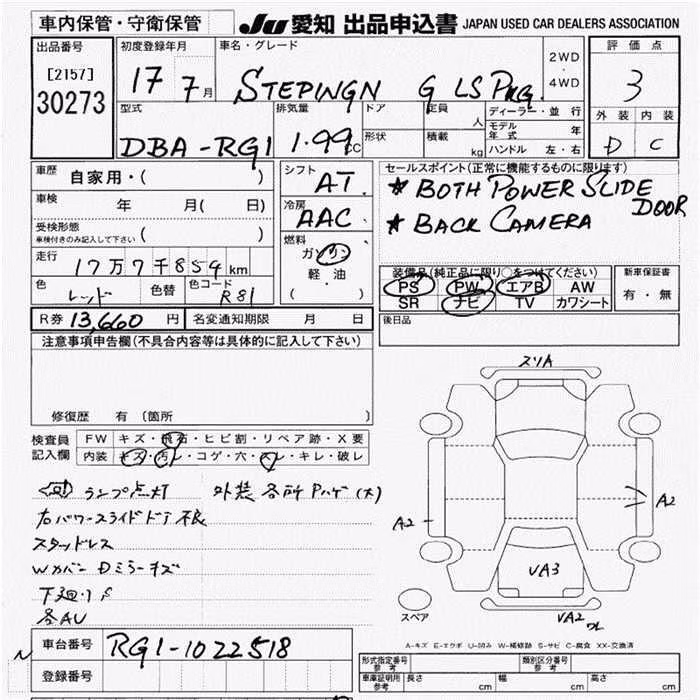 車内保管・守衛保管
JU 愛知 出品申込書 JAPAN USED CAR DEALERS ASSOCIATION
出品番号
[2157]
30273
初度登録年月
17 7月
車名・グレード
STEPWGN G LS PKG.
2WD
・
4WD
評価点
3
外装 内装
D C
型式
DBA-RG1
排気量
1.99CC
ドア
形状
定員 人
積載 kg
ディーラー・並行
モデル年式 年
ハンドル 左・右
車歴 自家用・( )
車検 年 月( 日)
受検形態
車検付きのみ記入して下さい ( )
走行 17万7千859km
色 レッド 色替 色コード R81
シフト AT
冷房 AAC
燃料 ガソリン
軽油
( )
セールスポイント(正常に機能するものに限ります)
* BOTH POWER SLIDE DOOR
* BACK CAMERA
装備品(純正品に限り○をつけてください)
PS PW エアB AW
SR ナビ TV カワシート
新車保証書
有・無
R券 13,660円 名変通知期限 月 日
後日品
注意事項申告欄(不具合内容等は具体的に記入して下さい)
修復歴 有 〔箇所 〕
検査員記入欄
FW キズ・飛石・ヒビ割・リペア跡・X要
内装 キズ・汚レ・コゲ・穴・スレ・キレ・破レ
ランプ点灯 外装各所Pハゲ(大)
右パワースライドドア不良
スタッドレス
Wカバー Dミラーキズ
下廻りS
各AU
スリA
A2
A2
VA3
VA2
スペア
A-キズ E-エクボ U-凹み W-補修跡 S-サビ C-腐食 XX-交換済
車台番号 RG1-1022518
登録番号
形式指定番号 参考
類別区分番号 参考
車庫証明用 参考 長さ cm 幅 cm 高さ cm